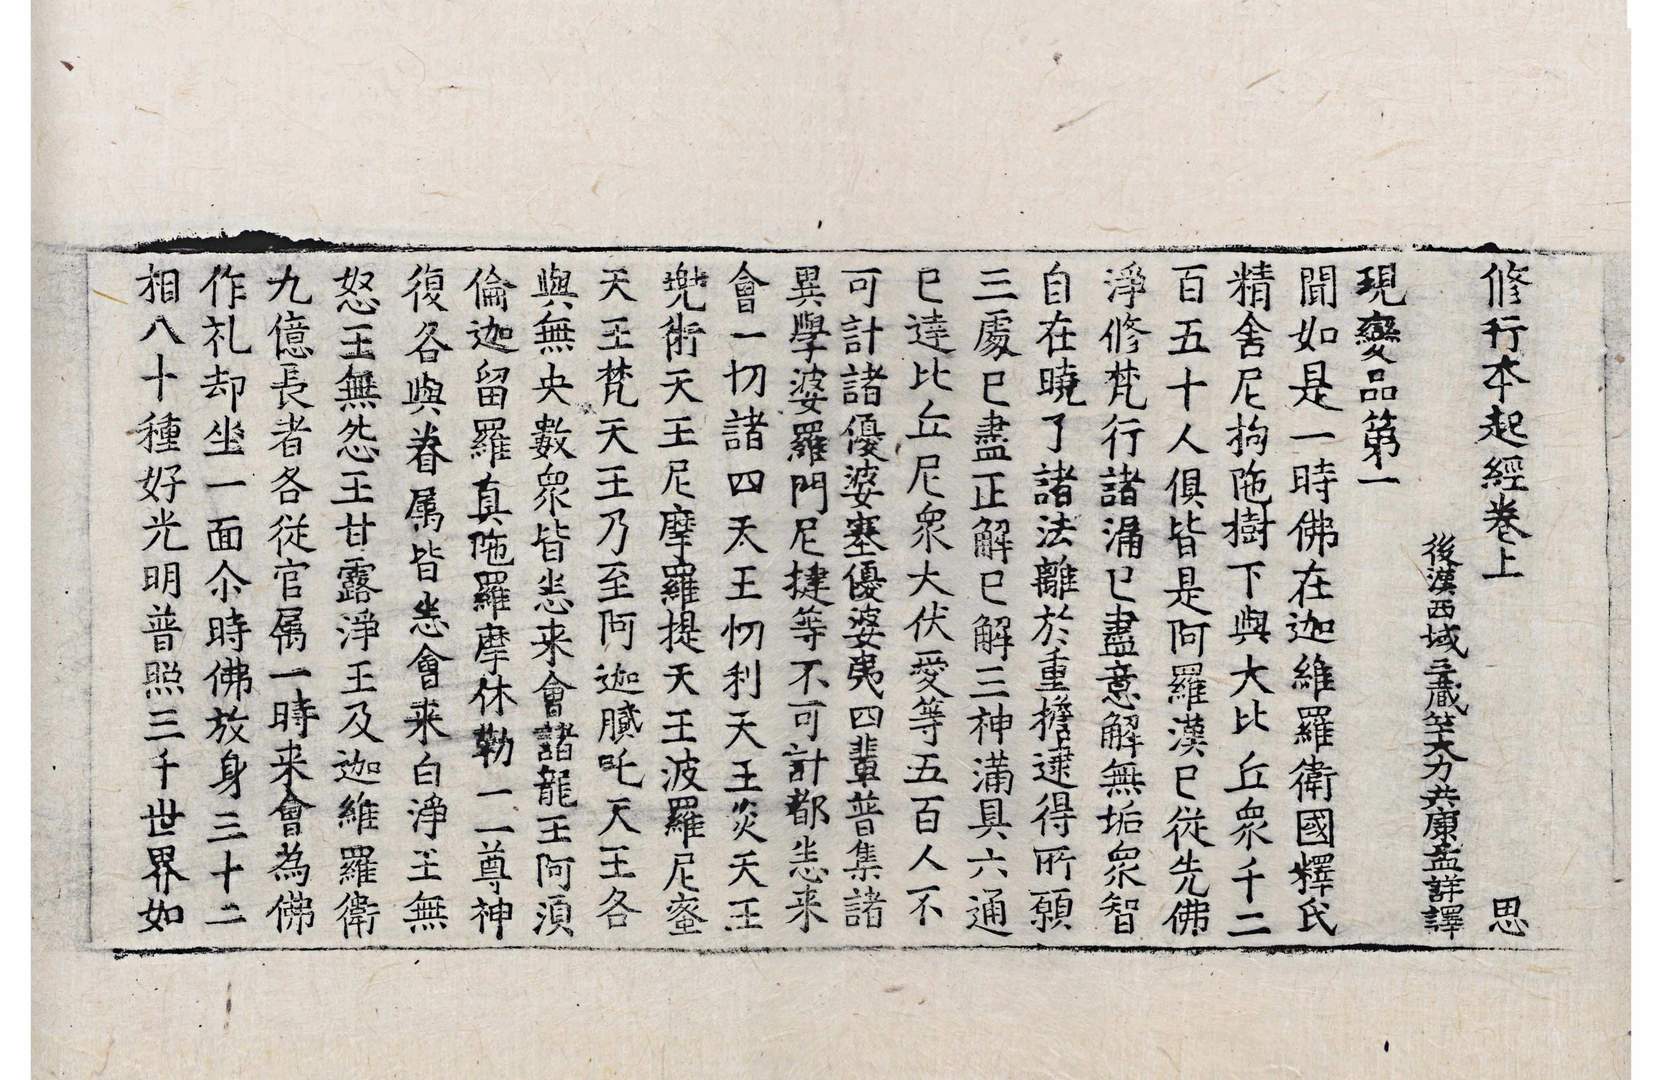 修行本起經卷上 思
後漢西域三藏竺大力共康孟詳譯
現變品第一
聞如是一時佛在迦維羅衛國釋氏
精舍尼拘陁樹下與大比丘衆千二
百五十人俱皆是阿羅漢已從先佛
淨修梵行諸漏已盡意解無垢衆智
自在曉了諸法離於重擔逮得所願
三處已盡正解已解三神滿具六通
已達比丘尼衆大伏愛等五百人不
可計諸優婆塞優婆夷四輩普集諸
異學婆羅門尼揵等不可計都悉来
會一切諸四天王忉利天王炎天王
兜術天王尼摩羅提天王波羅尼蜜
天王梵天王乃至阿迦膩吒天王各
與無央數衆皆悉来會諸龍王阿須
倫迦留羅真陁羅摩休勒一一尊神
復各與眷属皆悉會来白淨王無
怒王無怨王甘露淨王及迦維羅衛
九億長者各從官属一時来會為佛
作礼却坐一面尒時佛放身三十二
相八十種好光明普照三千世界如